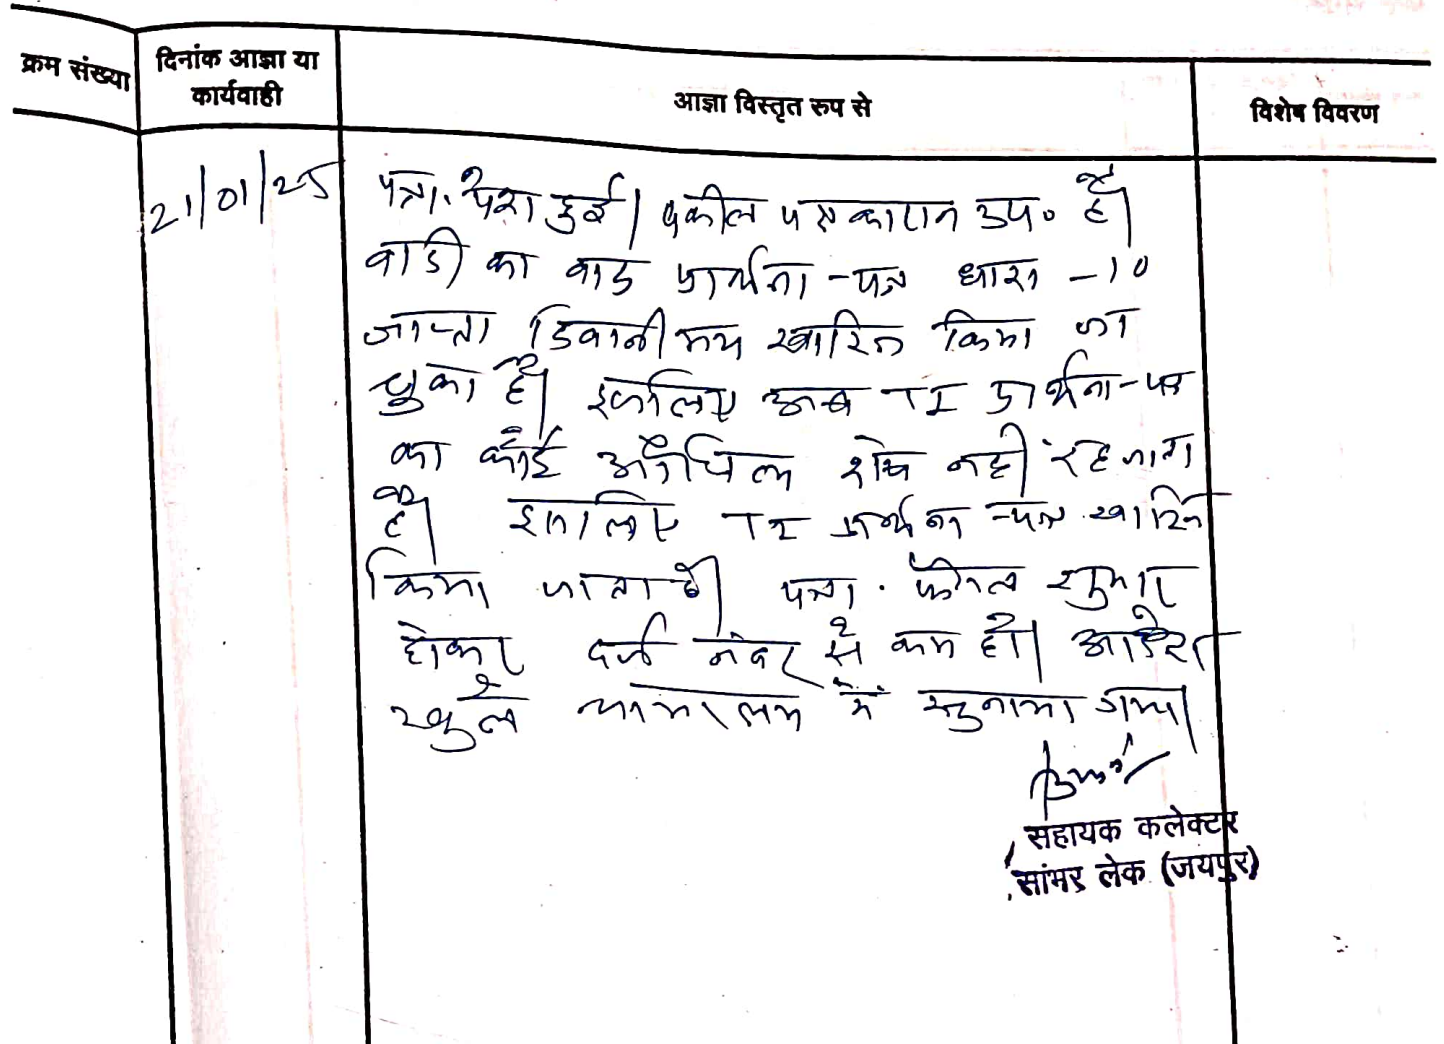 क्रम संख्या
दिनांक आज्ञा या
कार्यवाही
आज्ञा विस्तृत रुप से
विशेष विवरण
21/01/25
पत्रा. पेश हुई। वकील पक्षकारान उप० है।
वादी का वाद प्रार्थना-पत्र धारा -10
जाप्ता दिवानी खारिज किया जा
चुका है। इसलिए अब TI प्रार्थना-पत्र
का कोई औचित्य शेष नही रह जाता
है। इसलिए TI प्रार्थना-पत्र खारिज
किया जाता है। पत्रा. फैसल शुमार
होकर दर्ज नंबर से कम हो। आदेश
खुले न्यायालय में सुनाया गया।
सहायक कलेक्टर
सांभर लेक (जयपुर)